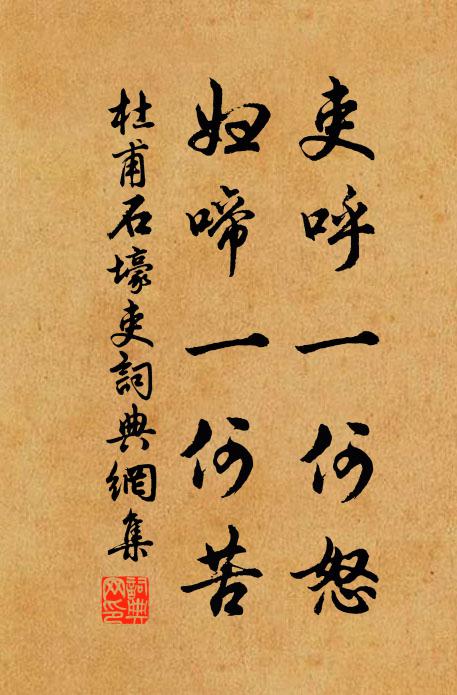 吏呼一何怒
婦啼一何苦
杜甫石壕吏詞典網集
詞典網印